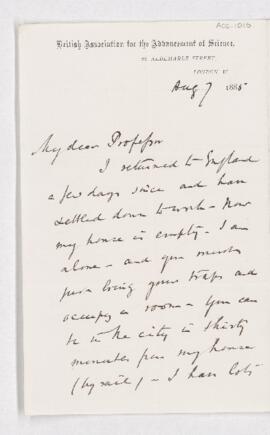 ACC-1016
British Association for the Advancement of Science.
22 ALBEMARLE STREET
LONDON W
Aug 7 1885
My dear Professor
I returned to England
a few days since and have
settled down to work - Now
my house is empty - I am
alone - and you must
just bring your traps and
occupy a room - You can
be in the city in thirty
minutes from my house
(by rail) - I have lots